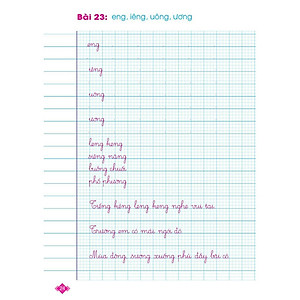 Bài 23: eng, iêng, uông, ương
eng
iêng
uông
ương
leng keng
siêng năng
buồng chuối
phố phường
Tiếng kẻng leng keng nghe vui tai.
Trường em có mái ngói đỏ.
Mùa đông, sương xuống phủ dày bãi cỏ.